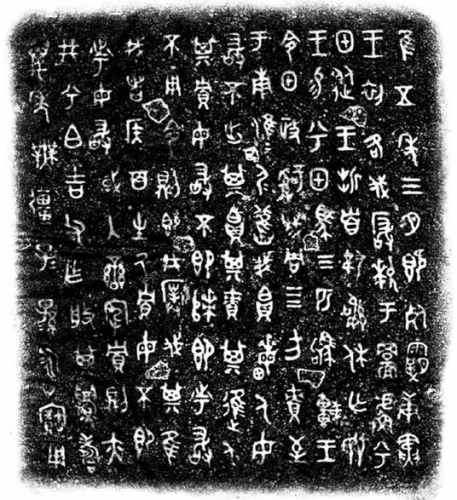 隹五年三月既死霸庚寅
王初各伐玁狁于䣙𧇭兮
甲從王折首執訊休亡敃
王易兮甲馬四匹駒車王
令甲政𤔲成周四方責至
于南淮尸淮尸舊我帛畮人毋
敢不出其帛其責其進人
其貯毋敢不即次即市敢
不用令則即井撲伐其隹
我者侯百生氒貯毋不即
市毋敢或入蠻宄貯則亦
井兮白吉父乍般其眉壽
萬年無疆子子孫孫永寶用